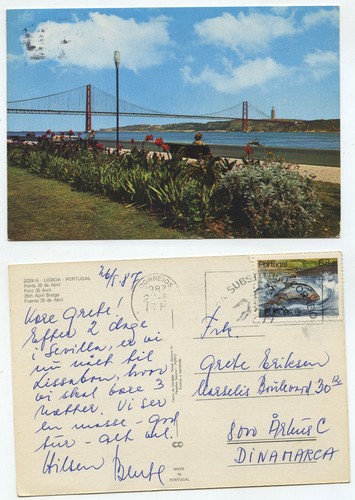 2029/A - LISBOA - PORTUGAL
Ponte 25 de Abril
Pont 25 Avril
25th April Bridge
Puente 25 de Abril
26/5 87
CORREIOS
Portugal
Kære Grete!
Efter 2 dage
i Sevilla, er vi
nu nået til
Lissabon, hvor
vi skal være 3
nætter. Vi ser
en masse - god
tur - alt vel.
Hilsen Bente
Frk.
Grete Eriksen
Marselis Boulevard 30
8000 Århus C
DINAMARCA
MADE
IN
PORTUGAL